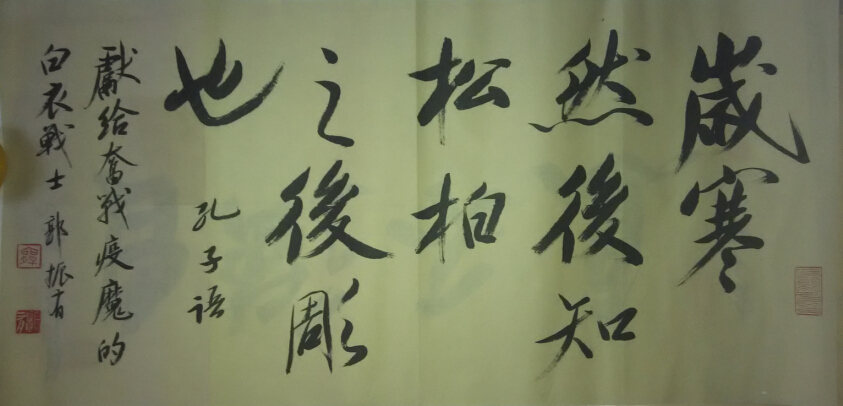 歲寒
然後知
松柏
之後彫
也
孔子语
獻给奮战疫魔的
白衣戰士 郭振有